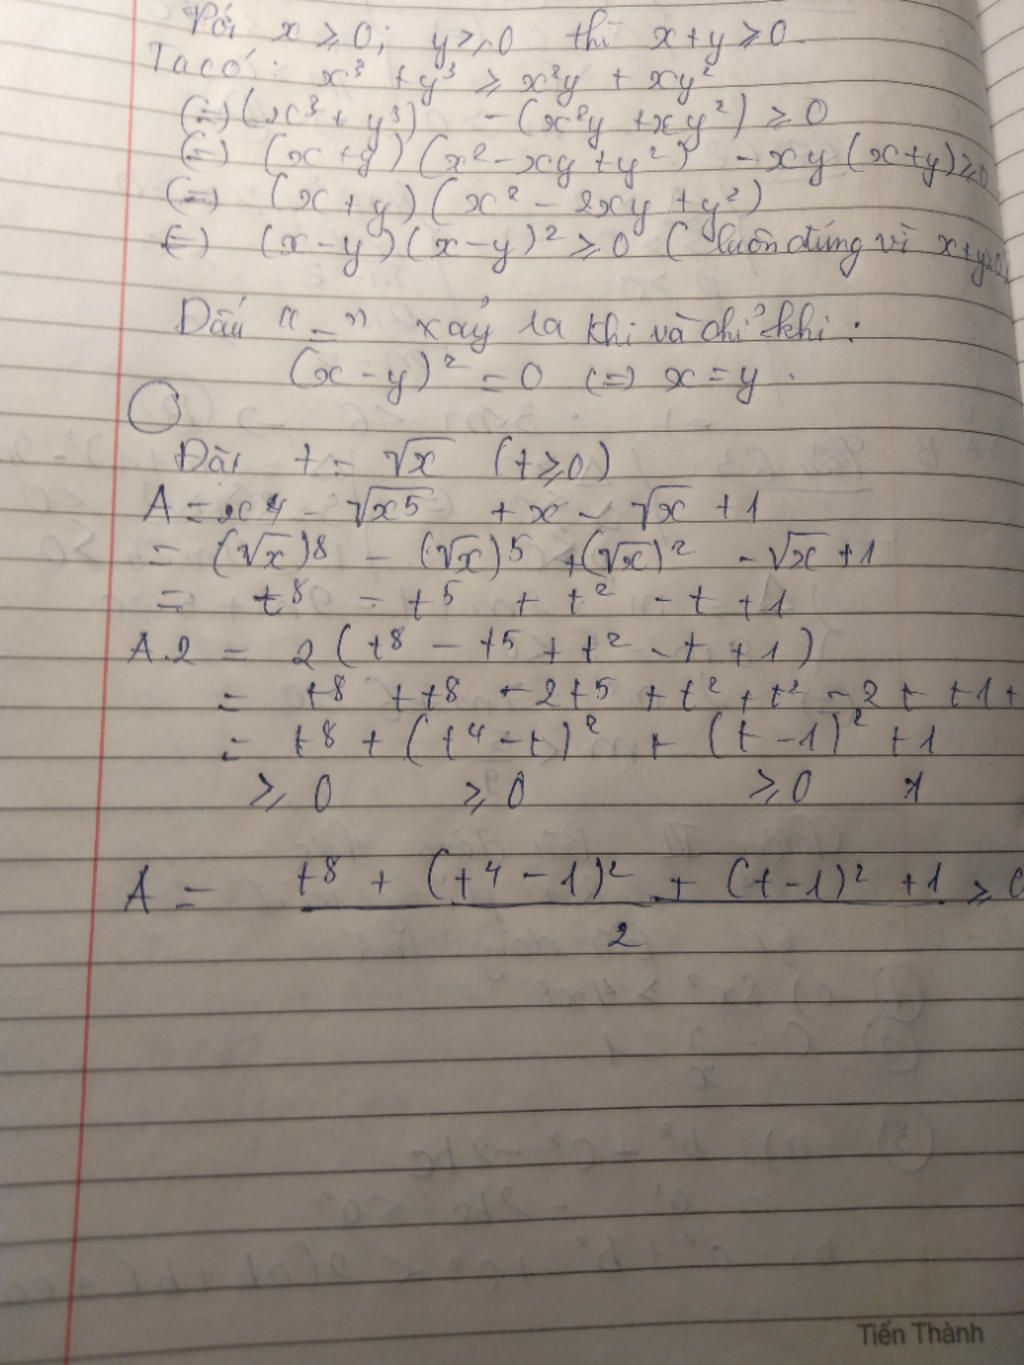 Với x ⩾ 0; y ⩾ 0 thì x + y ⩾ 0
Ta có: x³ + y³ ⩾ x²y + xy²
(=) (x³ + y³) - (x²y + xy²) ⩾ 0
(=) (x + y)(x² - xy + y²) - xy(x + y) ⩾ 0
(=) (x + y)(x² - 2xy + y²)
(=) (x - y)(x - y)² ⩾ 0 ( luôn đúng vì x + y ⩾ 0)
Dấu "=" xảy ra khi và chỉ khi:
(x - y)² = 0 (=) x = y.
Đặt t = √x (t ⩾ 0)
A = x4 - √x5 + x - √x + 1
= (√x)8 - (√x)5 + (√x)² - √x + 1
= t8 - t5 + t² - t + 1
A.2 = 2(t8 - t5 + t² - t + 1)
= t8 + t8 - 2t5 + t² + t² - 2t + 1 +
= t8 + (t4 - t)² + (t - 1)² + 1
⩾ 0 ⩾ 0 ⩾ 0 1
A = t8 + (t4 - 1)² + (t - 1)² + 1 ⩾ 0
2
Tiến Thành